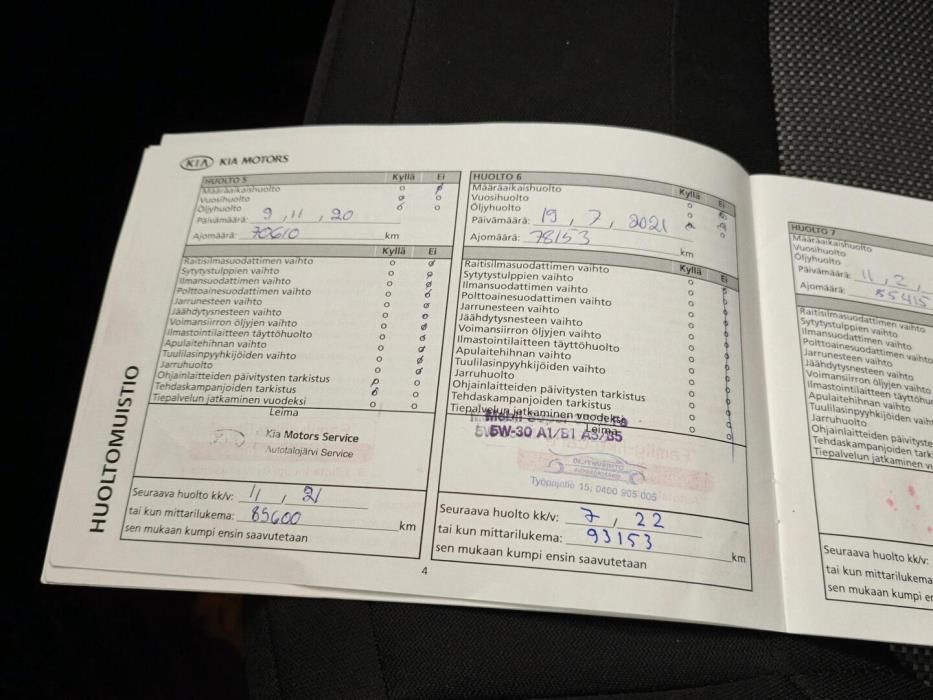 KIA KIA MOTORS
HUOLTOMUISTIO
HUOLTO 5 Kyllä Ei
Määräaikaishuolto
Vuosihuolto
Öljyhuolto
Päivämäärä: 9 , 11 , 20
Ajomäärä: 70610 km
Kyllä Ei
Raitisilmasuodattimen vaihto
Sytytystulppien vaihto
Ilmansuodattimen vaihto
Polttoainesuodattimen vaihto
Jarrunesteen vaihto
Jäähdytysnesteen vaihto
Voimansiirron öljyjen vaihto
Ilmastointilaitteen täyttöhuolto
Apulaitehihnan vaihto
Tuulilasinpyyhkijöiden vaihto
Jarruhuolto
Ohjainlaitteiden päivitysten tarkistus
Tehdaskampanjoiden tarkistus
Tiepalvelun jatkaminen vuodeksi
Leima
Kia Motors Service
Autotalojärvi Service
Seuraava huolto kk/v: 11 , 21
tai kun mittarilukema: 85600 km
sen mukaan kumpi ensin saavutetaan
4
HUOLTO 6 Kyllä Ei
Määräaikaishuolto
Vuosihuolto
Öljyhuolto
Päivämäärä: 19 , 7 , 2021
Ajomäärä: 78153 km
Kyllä Ei
Raitisilmasuodattimen vaihto
Sytytystulppien vaihto
Ilmansuodattimen vaihto
Polttoainesuodattimen vaihto
Jarrunesteen vaihto
Jäähdytysnesteen vaihto
Voimansiirron öljyjen vaihto
Ilmastointilaitteen täyttöhuolto
Apulaitehihnan vaihto
Tuulilasinpyyhkijöiden vaihto
Jarruhuolto
Ohjainlaitteiden päivitysten tarkistus
Tehdaskampanjoiden tarkistus
Tiepalvelun jatkaminen vuodeksi
Leima
5W-30 A1/B1 A5/B5
Työpajatie 15, 0400 905 005
Seuraava huolto kk/v: 7 , 22
tai kun mittarilukema: 93153 km
sen mukaan kumpi ensin saavutetaan
HUOLTO 7
Määräaikaishuolto
Vuosihuolto
Öljyhuolto
Päivämäärä: 11 , 2 ,
Ajomäärä: 85415
Raitisilmasuodattimen vaihto
Sytytystulppien vaihto
Ilmansuodattimen vaihto
Polttoainesuodattimen vaihto
Jarrunesteen vaihto
Jäähdytysnesteen vaihto
Voimansiirron öljyjen vaihto
Ilmastointilaitteen täyttöhuo
Apulaitehihnan vaihto
Tuulilasinpyyhkijöiden vaih
Jarruhuolto
Ohjainlaitteiden päivityste
Tehdaskampanjoiden tark
Tiepalvelun jatkaminen vu
Seuraava huolto kk/v:
tai kun mittarilukema
sen mukaan kumpi er